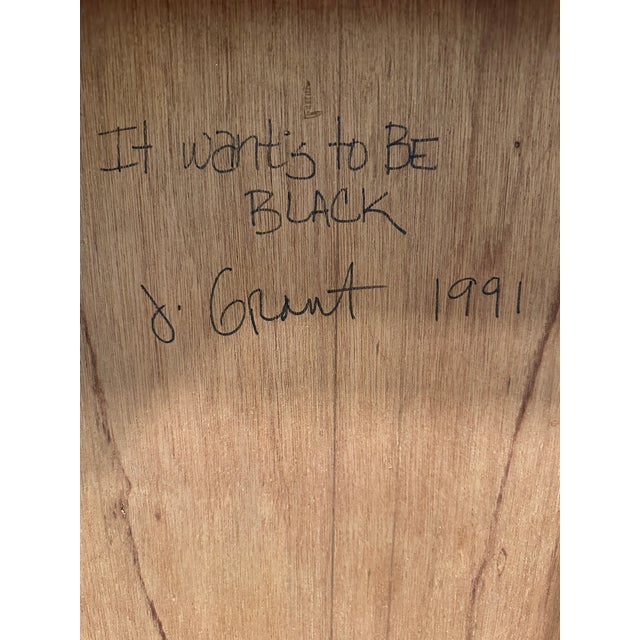 It want's to BE
BLACK
J. Grant 1991